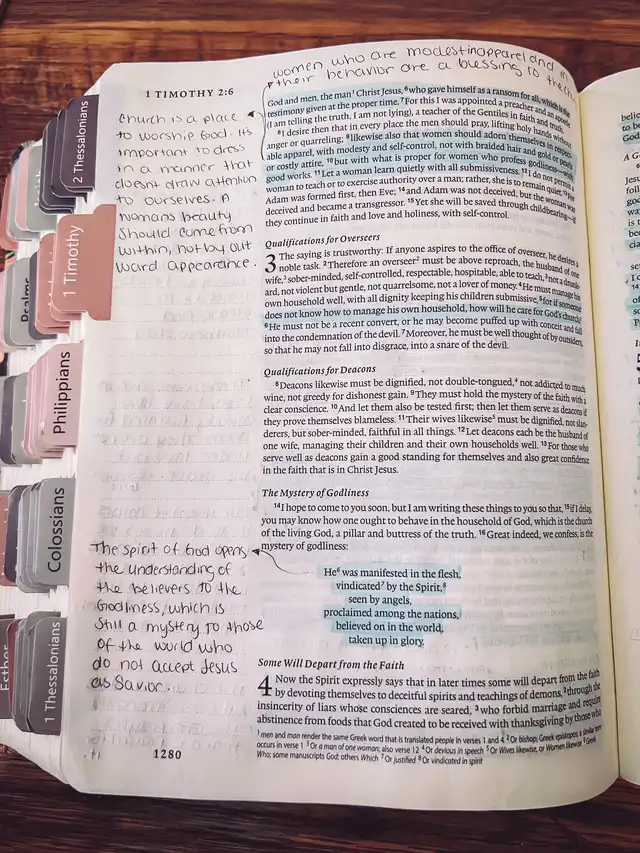 women who are modest in apparel and in
their behavior are a blessing to the
1 TIMOTHY 2:6
Church is a place
to worship God. Its
important to dress
in a manner that
doesnt draw attention
to ourselves. A
womans beauty
should come from
within, not by out
ward appearance.
The Spirit of God opens
the understanding of
the believers to the
Godliness, which is
still a mystery to those
of the world who
do not accept Jesus
as Savior.
1280
2 Thessalonians
1 Timothy
Psalms
Philippians
Colossians
1 Thessalonians
Esther
God and men, the man¹ Christ Jesus, ⁶who gave himself as a ransom for all, which is the
testimony given at the proper time. ⁷For this I was appointed a preacher and an apostle
(I am telling the truth, I am not lying), a teacher of the Gentiles in faith and truth.
⁸I desire then that in every place the men should pray, lifting holy hands without
anger or quarreling; ⁹likewise also that women should adorn themselves in respect-
able apparel, with modesty and self-control, not with braided hair and gold or pearls
or costly attire, ¹⁰but with what is proper for women who profess godliness—with
good works. ¹¹Let a woman learn quietly with all submissiveness. ¹²I do not permit a
woman to teach or to exercise authority over a man; rather, she is to remain quiet. ¹³For
Adam was formed first, then Eve; ¹⁴and Adam was not deceived, but the woman was
deceived and became a transgressor. ¹⁵Yet she will be saved through childbearing—if
they continue in faith and love and holiness, with self-control.
Qualifications for Overseers
3 The saying is trustworthy: If anyone aspires to the office of overseer, he desires a
noble task. ²Therefore an overseer² must be above reproach, the husband of one
wife,³ sober-minded, self-controlled, respectable, hospitable, able to teach, ³not a drunk-
ard, not violent but gentle, not quarrelsome, not a lover of money. ⁴He must manage his
own household well, with all dignity keeping his children submissive, ⁵for if someone
does not know how to manage his own household, how will he care for God's church?
⁶He must not be a recent convert, or he may become puffed up with conceit and fall
into the condemnation of the devil. ⁷Moreover, he must be well thought of by outsiders,
so that he may not fall into disgrace, into a snare of the devil.
Qualifications for Deacons
⁸Deacons likewise must be dignified, not double-tongued,⁴ not addicted to much
wine, not greedy for dishonest gain. ⁹They must hold the mystery of the faith with a
clear conscience. ¹⁰And let them also be tested first; then let them serve as deacons if
they prove themselves blameless. ¹¹Their wives likewise⁵ must be dignified, not slan-
derers, but sober-minded, faithful in all things. ¹²Let deacons each be the husband of
one wife, managing their children and their own households well. ¹³For those who
serve well as deacons gain a good standing for themselves and also great confidence
in the faith that is in Christ Jesus.
The Mystery of Godliness
¹⁴I hope to come to you soon, but I am writing these things to you so that, ¹⁵if I delay,
you may know how one ought to behave in the household of God, which is the church
of the living God, a pillar and buttress of the truth. ¹⁶Great indeed, we confess, is the
mystery of godliness:
He⁶ was manifested in the flesh,
vindicated⁷ by the Spirit,⁸
seen by angels,
proclaimed among the nations,
believed on in the world,
taken up in glory.
Some Will Depart from the Faith
4 Now the Spirit expressly says that in later times some will depart from the faith
by devoting themselves to deceitful spirits and teachings of demons, ²through the
insincerity of liars whose consciences are seared, ³who forbid marriage and require
abstinence from foods that God created to be received with thanksgiving by those who
¹ men and man render the same Greek word that is translated people in verses 1 and 4 ² Or bishop; Greek episkopos; a similar term
occurs in verse 1 ³ Or a man of one woman; also verse 12 ⁴ Or devious in speech ⁵ Or Wives likewise, or Women likewise ⁶ Greek
Who; some manuscripts God; others Which ⁷ Or justified ⁸ Or vindicated in spirit